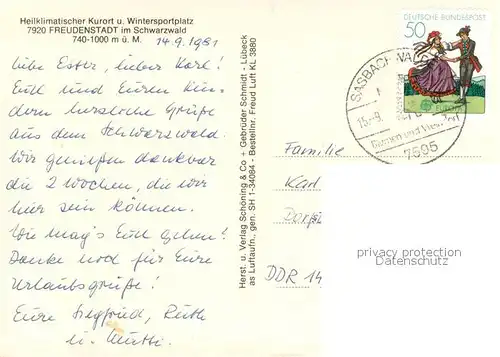 Heilklimatischer Kurort u. Wintersportplatz
7920 FREUDENSTADT im Schwarzwald
740-1000 m ü. M.
14.9.1981
Liebe Ester, lieber Karl!
Euch und Euren Kin-
dern herzliche Grüße
aus dem Schwarzwald.
Wir genießen dankbar
die 2 Wochen, die wir
hier sein können.
Wie mag's Euch gehen?
Danke noch für Eure
Urlaubsgrüße!
Eure Siegfried, Ruth
u. Mutti.
Herst. u. Verlag Schöning & Co + Gebrüder Schmidt - Lübeck
as Luftaufn., gen. SH 1-34084 - Bestellnr. Freud Luft KL 3880
DEUTSCHE BUNDESPOST
50
EUROPA
SASBACHWALD
15.-9.
Blumen und
7595
Familie
Karl
DDR 14
privacy protection
Datenschutz